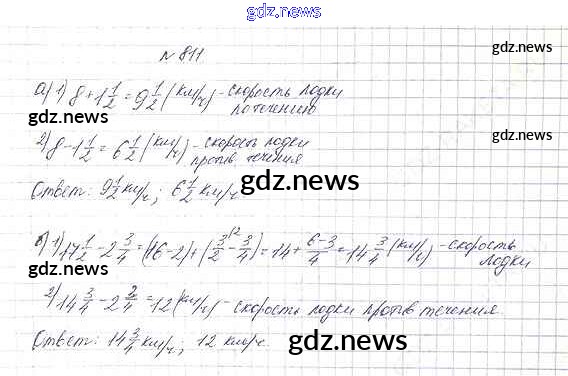 gdz.news
№ 811
gdz.news
а) 1) 8 + 1 1/2 = 9 1/2 (км/ч) - скорость лодки
по течению
gdz.news
gdz.news
2) 8 - 1 1/2 = 6 1/2 (км/ч) - скорость лодки
против течения
Ответ: 9 1/2 км/ч; 6 1/2 км/ч.
gdz.news
б) 1) 17 1/2 - 2 3/4 = (16-2) + (3/2 - 3/4) = 14 + 6-3/4 = 14 3/4 (км/ч) - скорость
лодки
2) 14 3/4 - 2 3/4 = 12 (км/ч) - скорость лодки против течения.
Ответ: 14 3/4 км/ч; 12 км/ч.
gdz.news
gdz.news